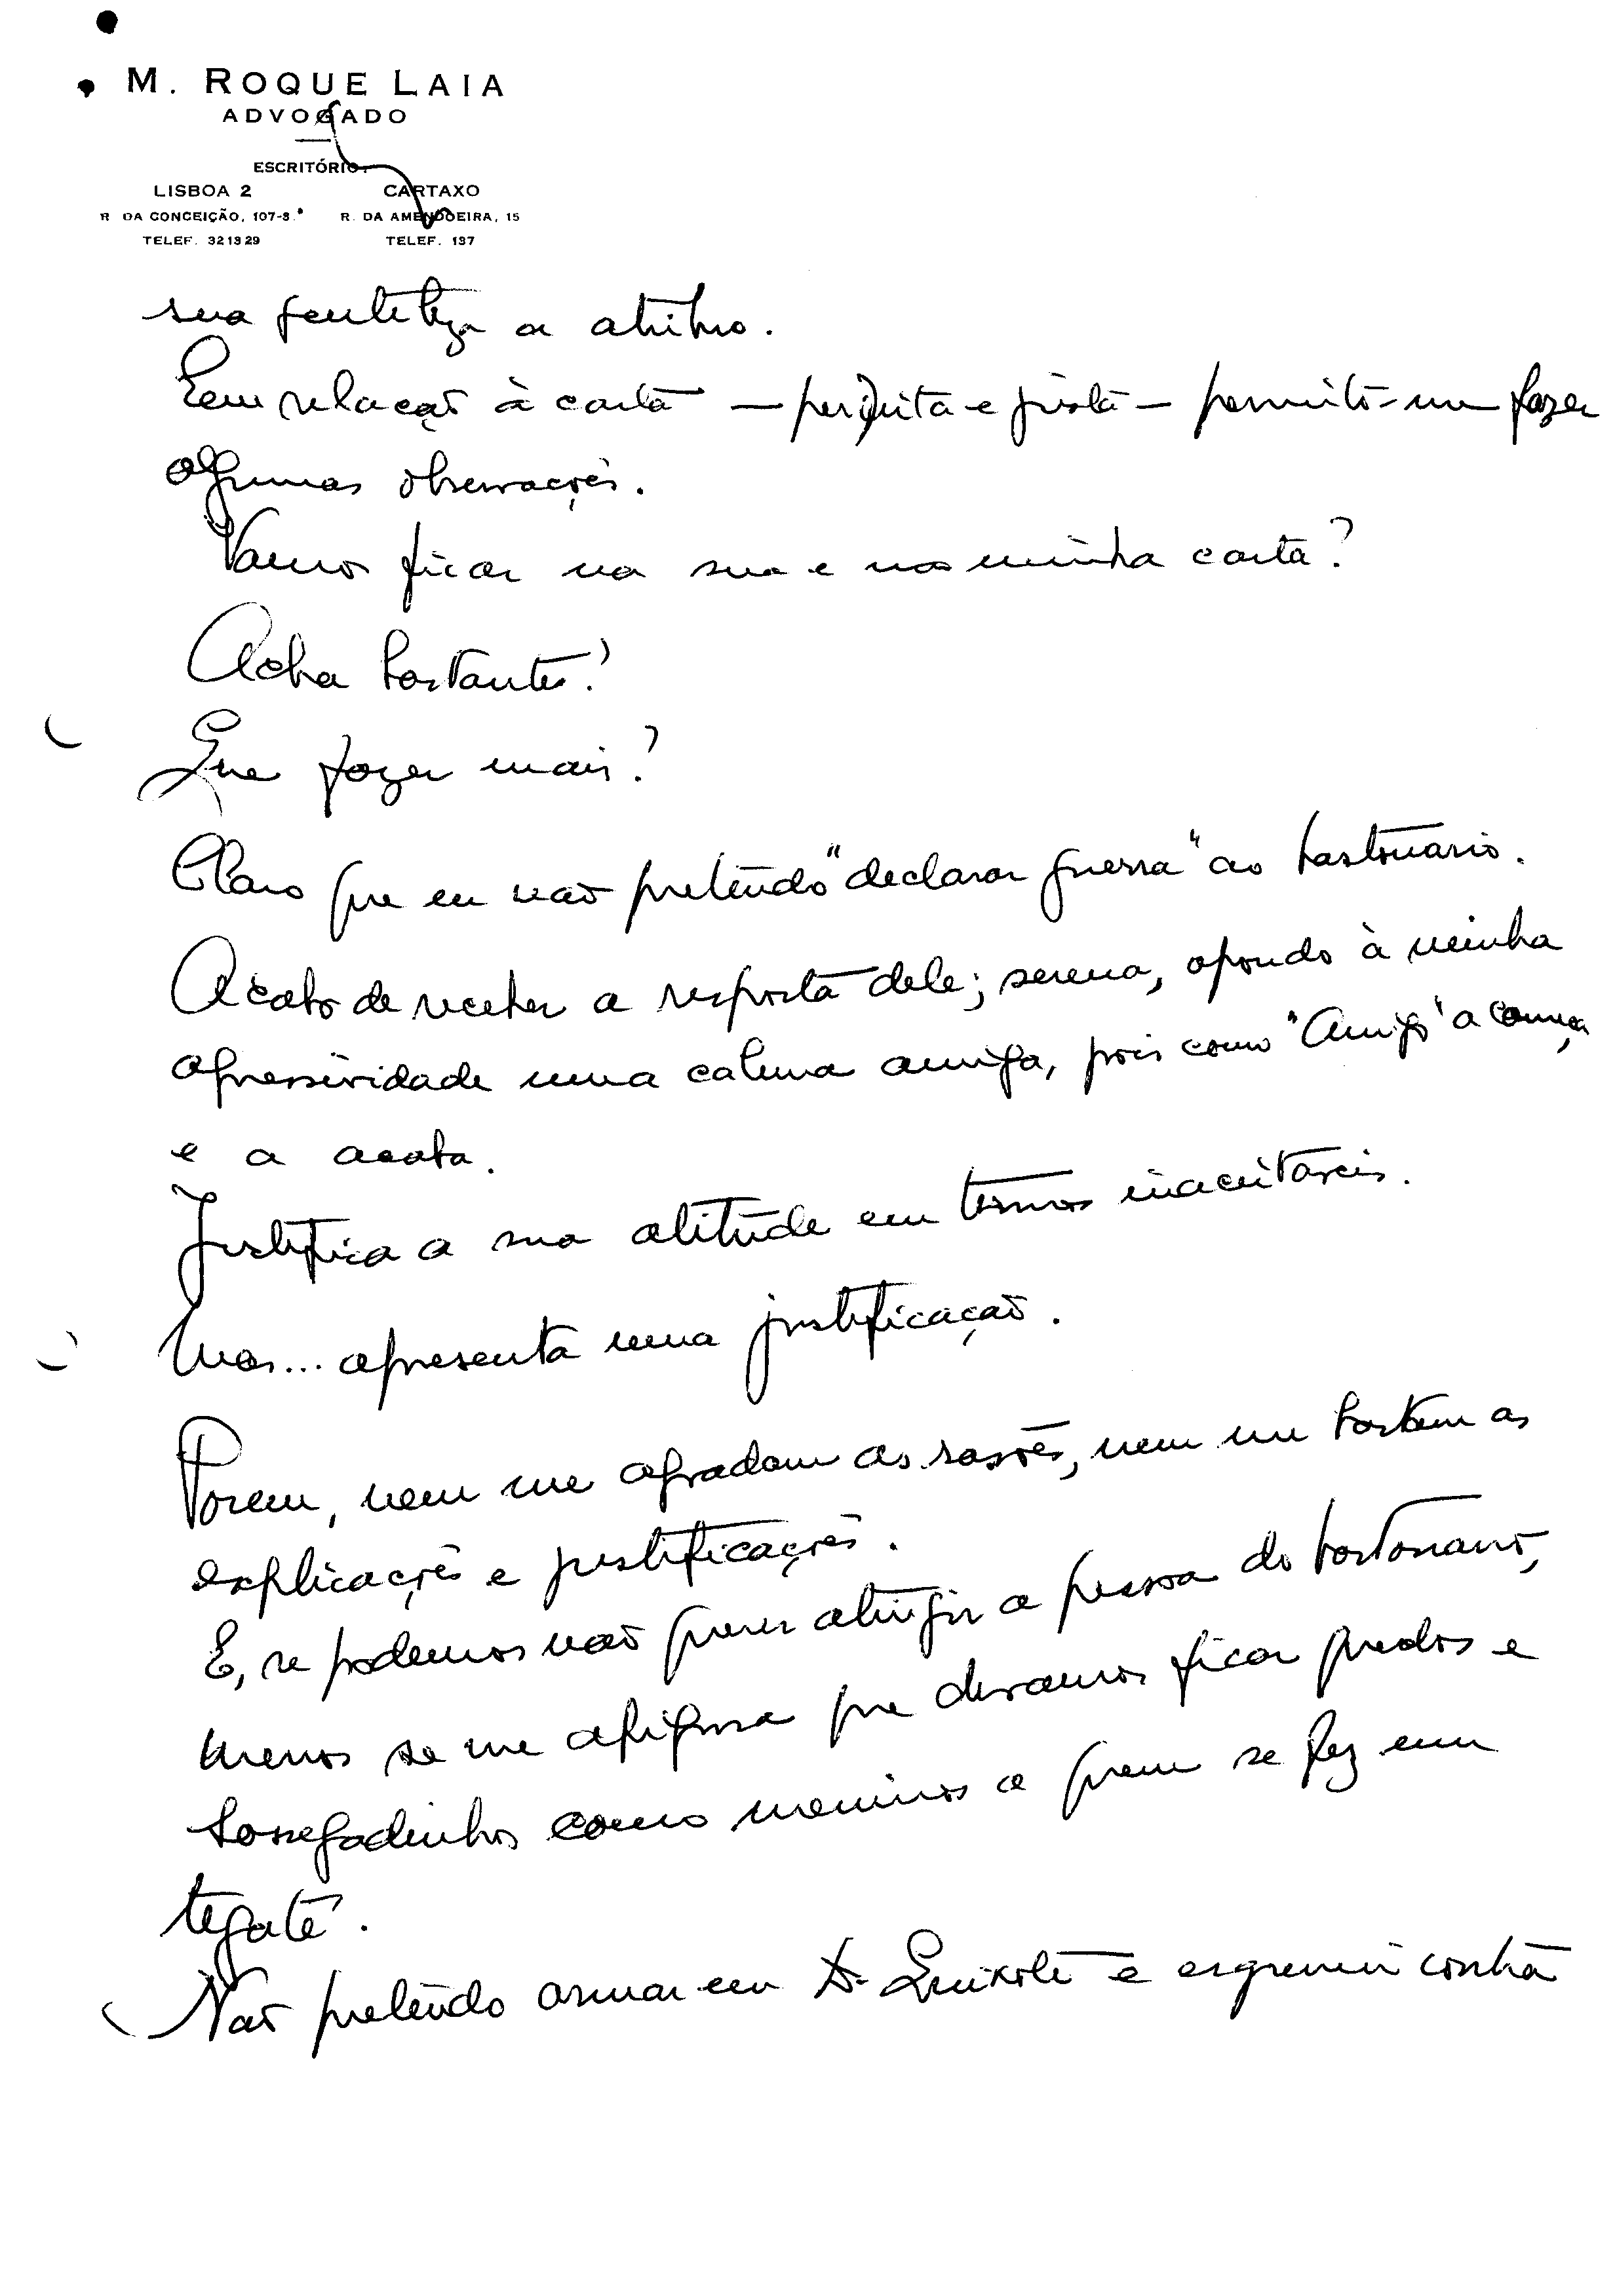 M. ROQUE LAIA
ADVOGADO
ESCRITÓRIO:
LISBOA 2 CARTAXO
R DA CONCEIÇÃO, 107-3.º R. DA AMENDOEIRA, 15
TELEF. 321329 TELEF. 137
sua gentileza a atribuo.
Com relação à carta — perfeita e justa — permito-me fazer
algumas observações.
Vamos ficar na sua e na minha carta?
Acha bastante?
Que fazer mais?
Claro que eu não pretendo "declarar guerra" ao bastonario.
Acabo de receber a resposta dele; serena, opondo à minha
agressividade uma calma amiga, pois como "Amigo" a começa
e a acaba.
Justifica a sua atitude em termos inaceitaveis.
Mas... apresenta uma justificação.
Porem, nem me agradam as rasões, nem me bastam as
explicações e justificações.
E, se podemos não querer atingir a pessoa do bastonario,
menos se me afigura que devamos ficar quedos e
sossegadinhos como meninos a quem se fez um
tegaté.
Não pretendo armar em D. Quixote e esgremir contra